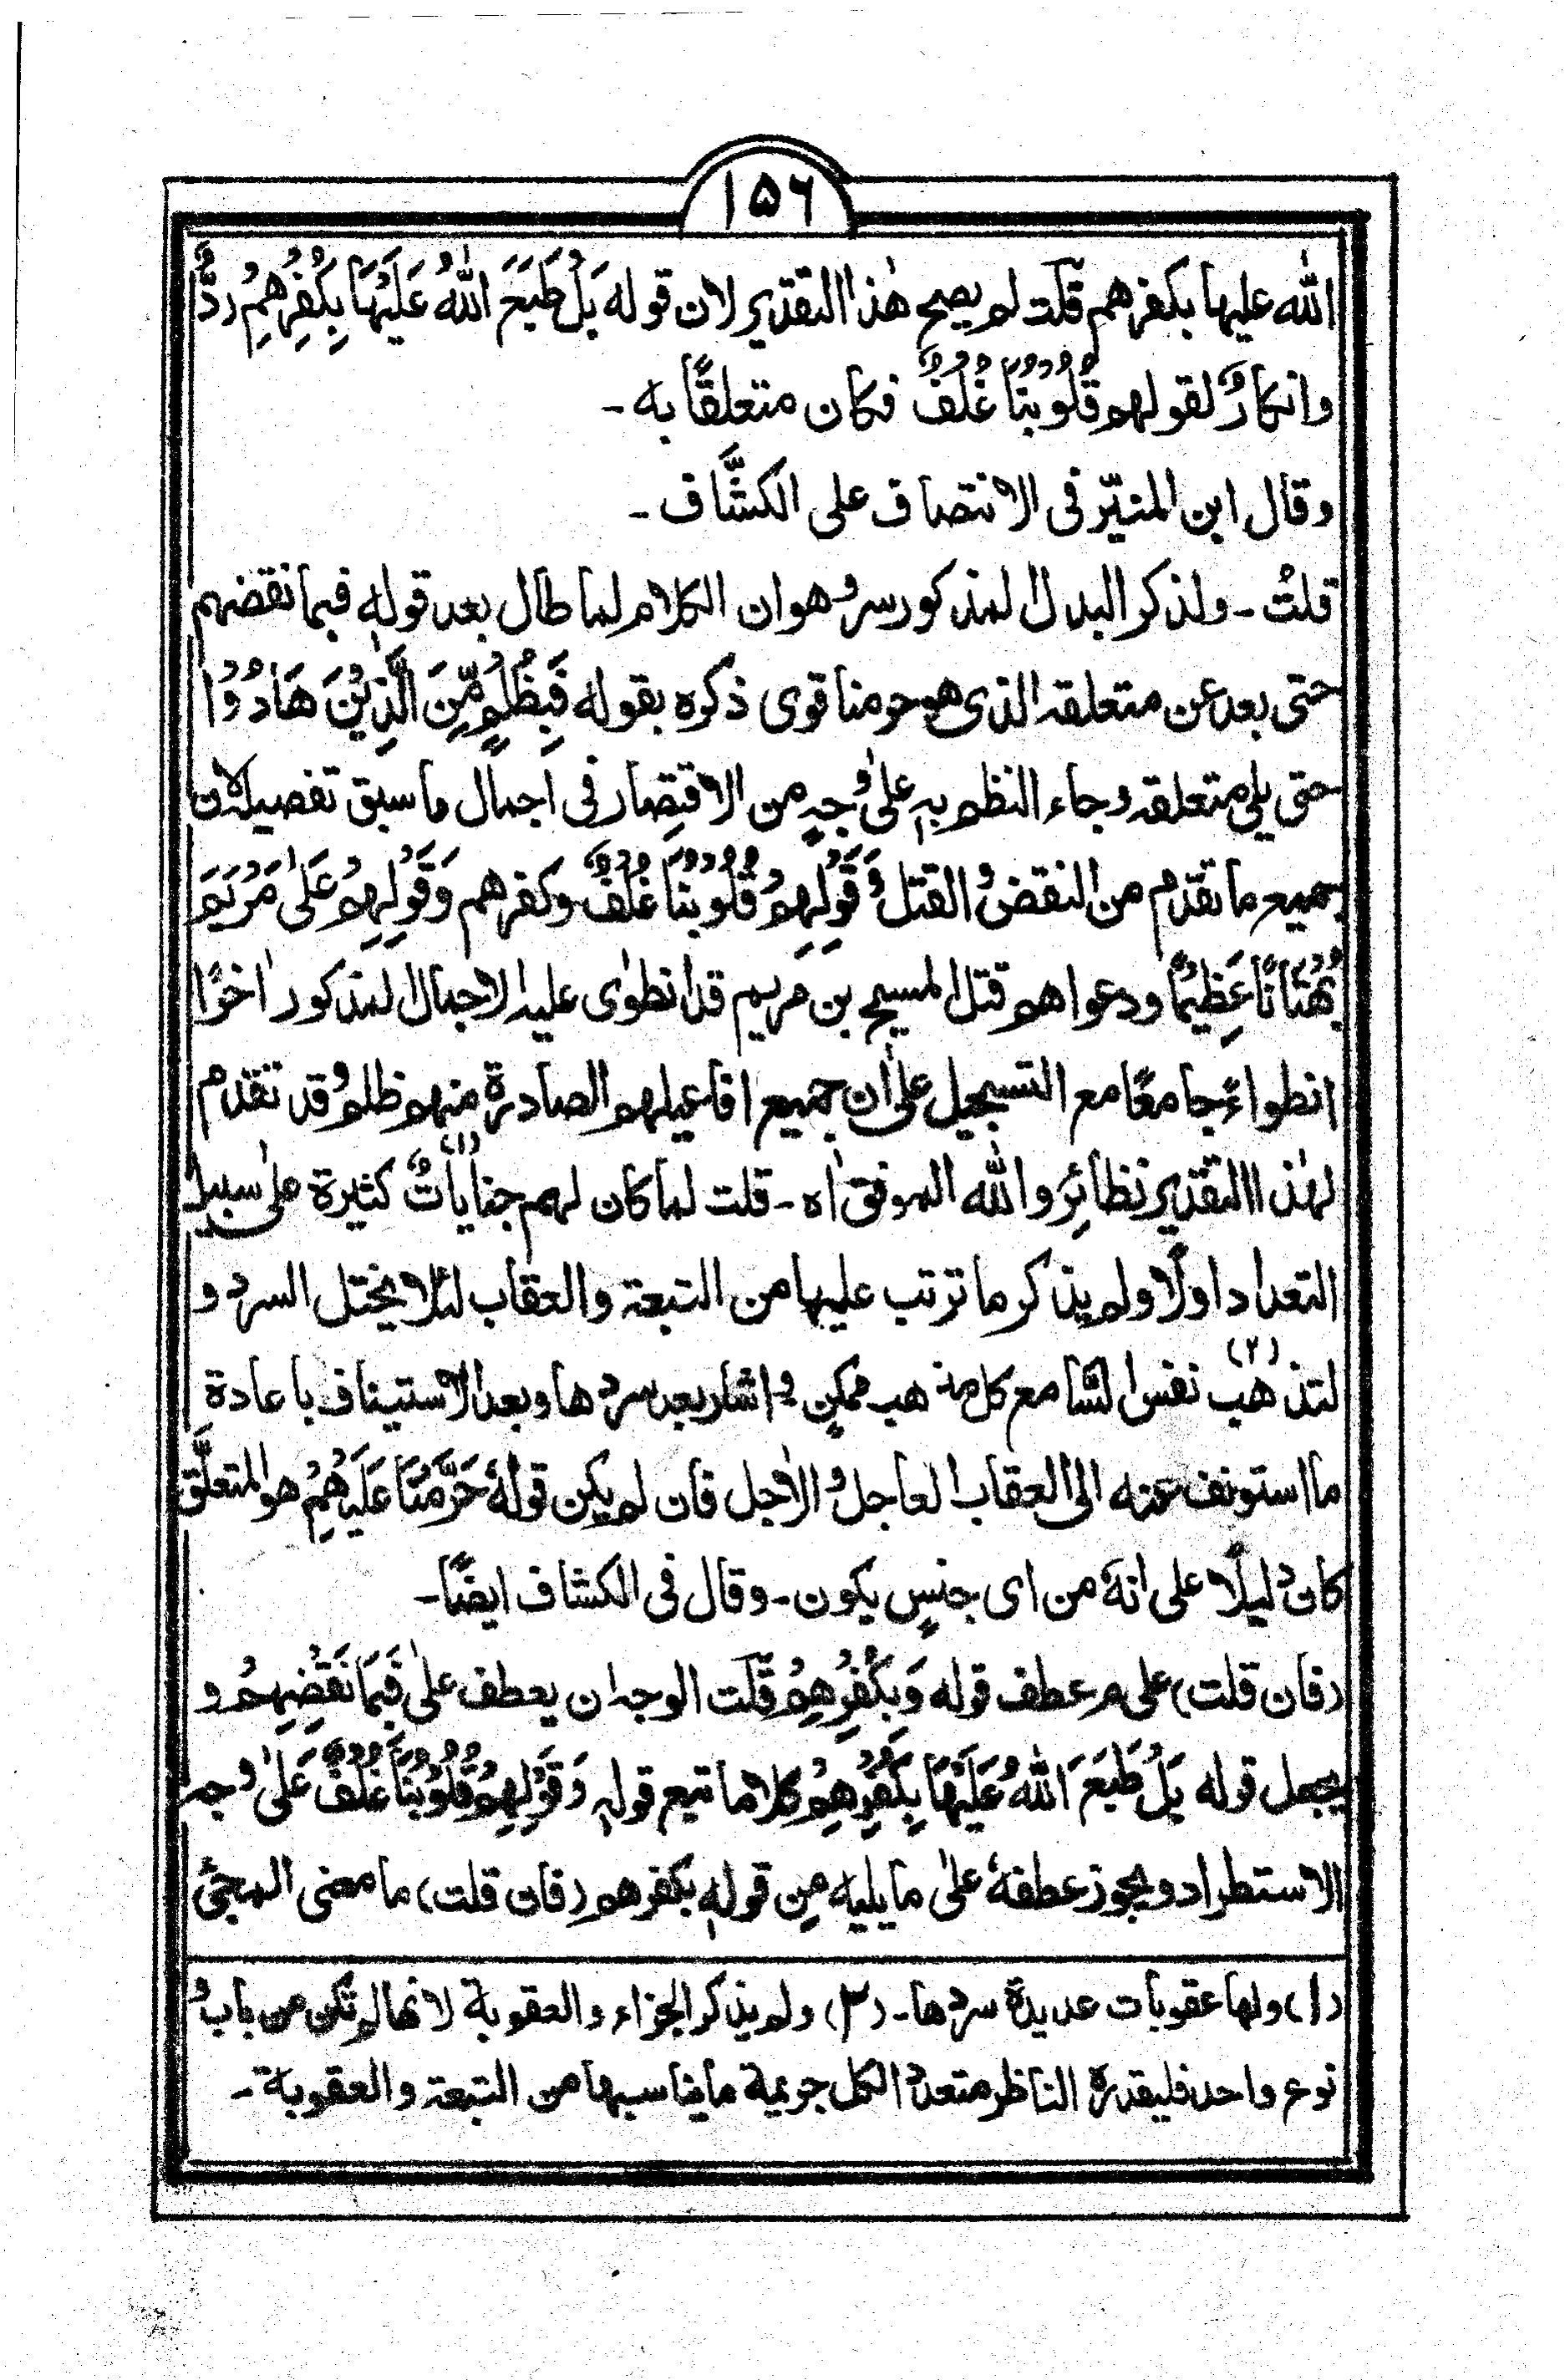 ١٥٦
الله عليها بكفرهم قلت لم يصح هٰذا التقدير لان قوله بَلْ طَبَعَ اللّٰهُ عَلَيْهَا بِكُفْرِهِمْ ردٌّ
وانكارٌ لقولهم قُلُوْبُنَا غُلْفٌ فكان متعلقًا به ـ
وقال ابن المنيّر فى الانتصاف على الكشَّاف ـ
قلتُ ـ ولذكر البدل المذكور سر وهو ان الكلام لما طال بعد قولهٖ فبما نقضهم
حتى بعد عن متعلقه الذى هو حرمنا قوى ذكره بقوله فَبِظُلْمٍ مِّنَ الَّذِيْنَ هَادُوْا
حتى يلى متعلقه وجاء النظم بهٖ علىٰ وجهٍ من الاقتصار فى اجمال ما سبق تفصيله لان
جميع ما تقدم من النقض والقتل وَقَوْلِهِمْ قُلُوْبُنَا غُلْفٌ وكفرهم وَقَوْلِهِمْ عَلىٰ مَرْيَمَ
بُهْتَانًا عَظِيْمًا ودعواهم قتل المسيح بن مريم قد انطوىٰ عليه الاجمال المذكور اٰخرًا
انطواءً جامعًا مع التسجيل علىٰ ان جميع افاعيلهم الصادرة منهم ظلم وقد تقدم
لهٰذا التقدير نظائِرَ والله الموفق اٰه ـ قلت لما كان لهم جناياتٌ (١) كثيرة علىٰ سبيل
التعداد اولًا ولم يذكر ما ترتب عليها من التبعة والعقاب لئلا يختل السرد و
لتذهب (٢) نفس السامع كل مذهب ممكنٍ واشار بعد سردها وبعد الاستيناف باعادة
ما استونف عنه الى العقاب العاجل والاٰجل فان لم يكن قولهٗ حَرَّمْنَا عَلَيْهِمْ هو المتعلَّق
كان دليلًا على انهٗ من اى جنسٍ يكون ـ وقال فى الكشاف ايضًا ـ
(فان قلت) على م عطف قوله وَبِكُفْرِهِمْ قلت الوجه ان يعطف علىٰ فَبِمَا نَقْضِهِمْ و
يجعل قوله بَلْ طَبَعَ اللّٰهُ عَلَيْهَا بِكُفْرِهِمْ كلاما تبع قولهٖ وَقَوْلِهِمْ قُلُوْبُنَا غُلْفٌ عَلىٰ وجه
الاستطراد ويجوز عطفهٗ علىٰ ما يليه من قولهٖ بكفرهم (فان قلت) ما معنى المجئ
(١) ولها عقوبات عديدة سردها ـ (٢) ولم يذكر الجزاء والعقوبة لانها لم تكن من باب و
نوع واحد فليقدره الناظر متعدد الكل جريمة ما يناسبها من التبعة والعقوبة ـ